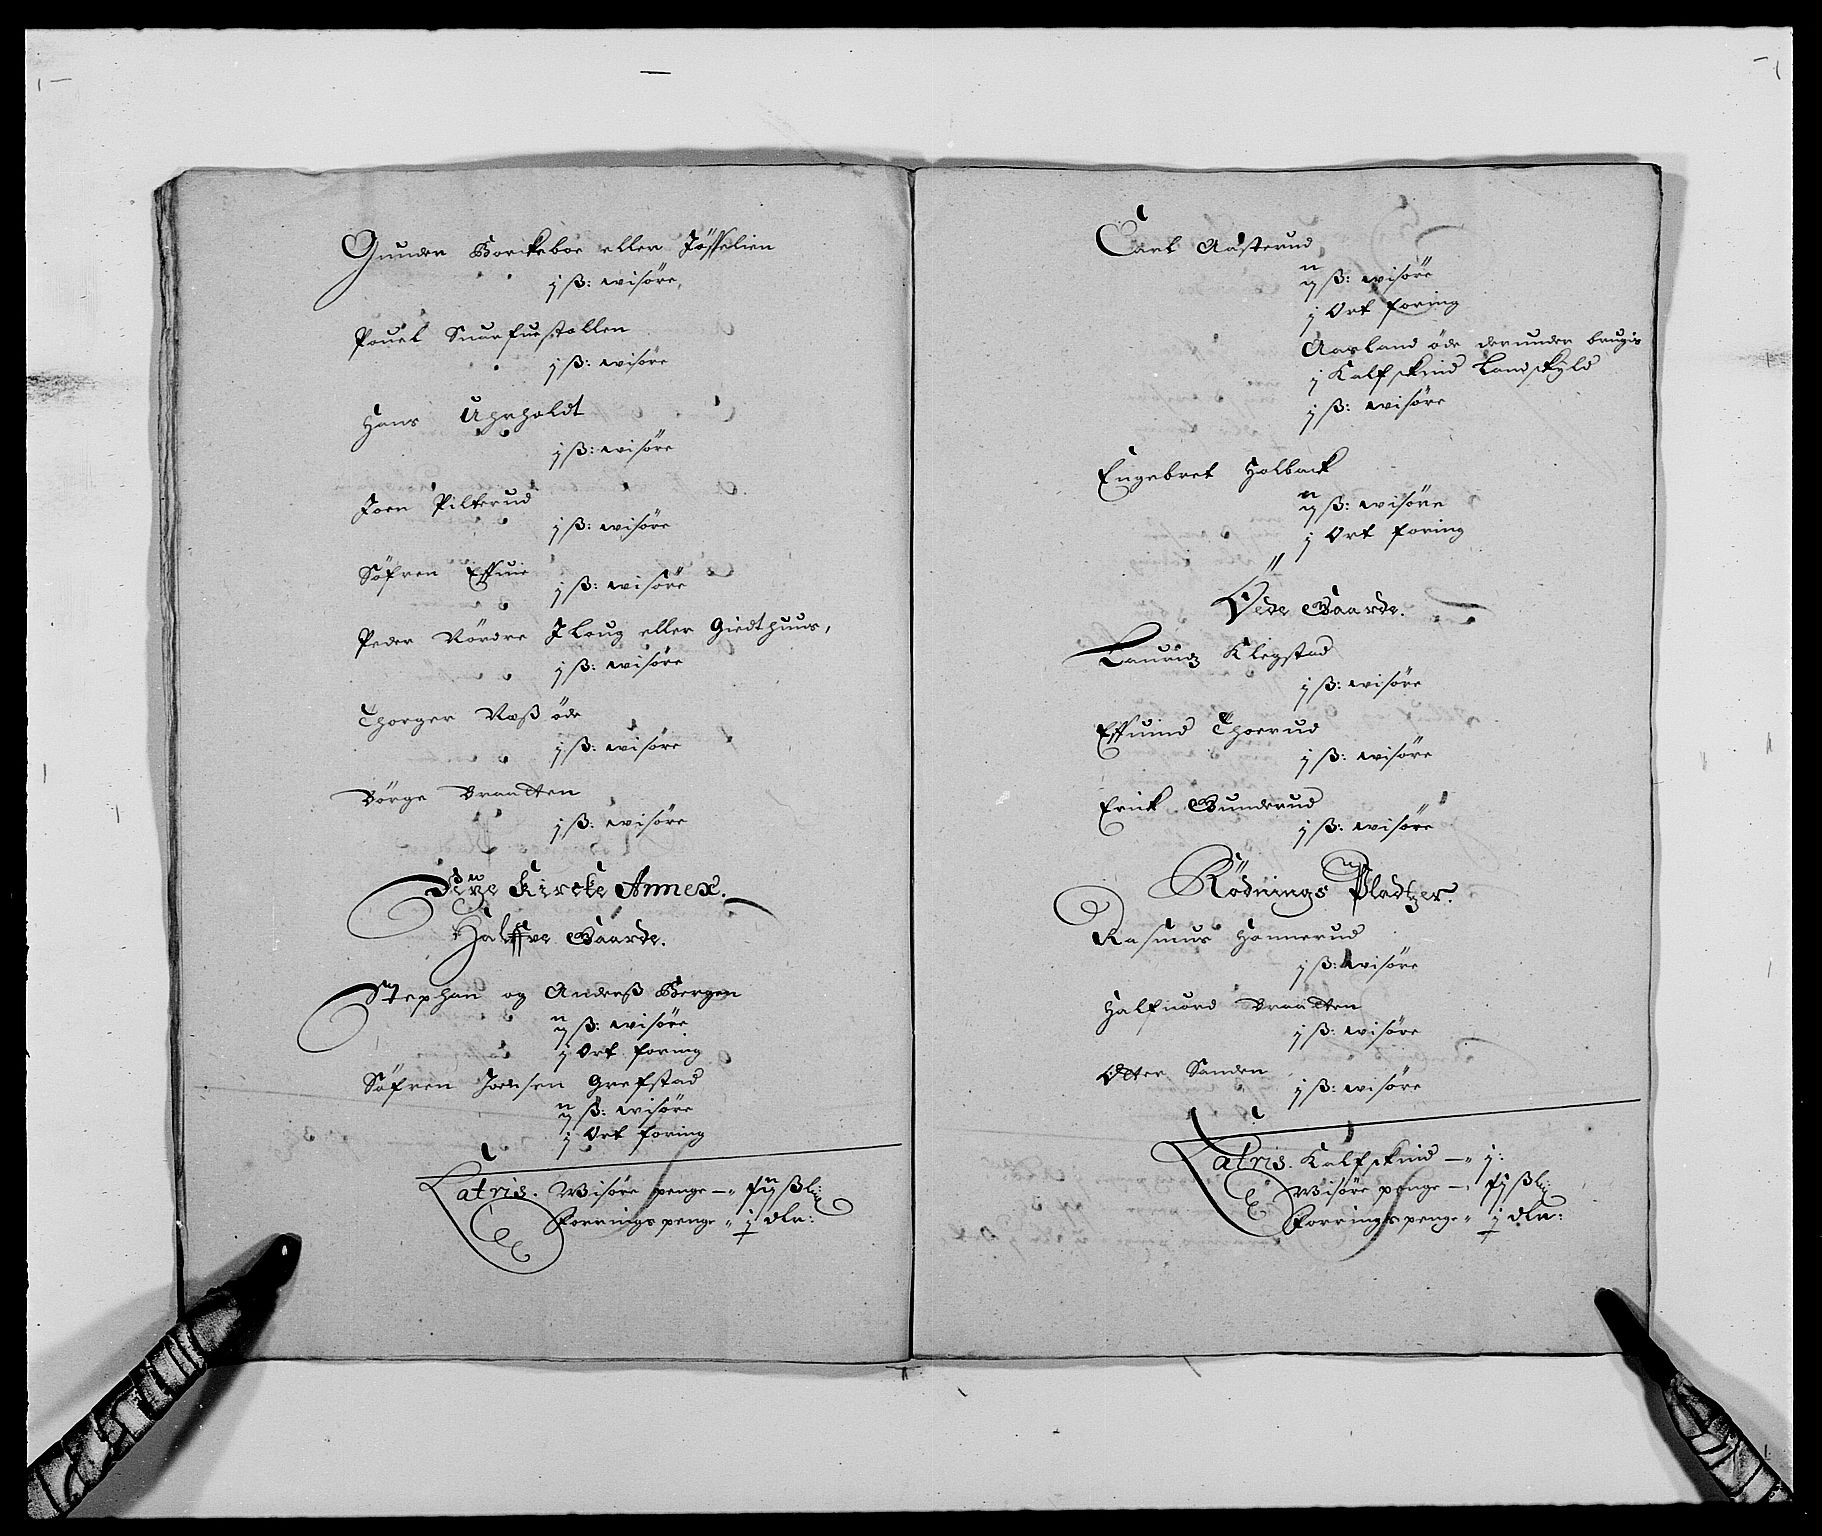 Gunder Borckeboe eller Jösselien
j ß: wisöre,
Pouel Snarfuestallen
j ß: wisöre
Hans Uhrholdt
j ß: wisöre
Joen Pilterud
j ß: wisöre
Söfren Effuie
j ß: wisöre
Peder Nördre J Loug eller Giedthuus,
j ß: wisöre
Thorger Næß öde
j ß: wisöre
Börge Braadten
j ß: wisöre
Kircke Annex.
Halffve Gaarde.
Stephan og Anderß Bergen
ij ß: wisöre
j Ort foring
Söfren Joensen Grefstad
ij ß: wisöre
j Ort foring
Latris. Wisöre penge —„ ß
Forrings penge „ dlr:
Carl Aasterud
ij ß: wisöre
j Ort foring
Aasland öde derunder brugis
j Kalfskind Landskyld
j ß: wisöre
Engebret Holback
ij ß: wisöre
j Ort foring
Öede Gaarde.
Lauridz Klegstad
j ß: wisöre
Effuind Thorrud
j ß: wisöre
Erick Gunderud
j ß: wisöre
Rödnings Pladtzer.
Rasmus Hannerud
j ß: wisöre
Halfuord Braadten
j ß: wisöre
Otter Sanden
j ß: wisöre
Latris. Kalfskind —„ j:
Wisöre penge — ß
Forrings penge „ dlr: